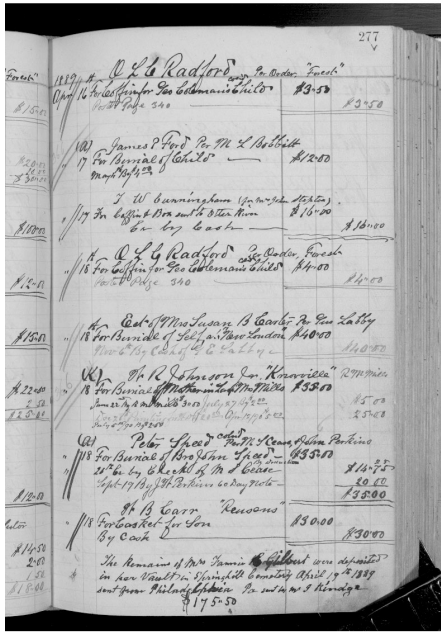 277
"Forest"
1889 O L C Radford col'd Per Order, "Forest"
Apr 16 For Coffin for Geo Coleman's Child $3.50
Post'd Page 340 $3.50
James P Ford Per M L Bobbitt
17 For Burial of Child $12.00
T W Cunningham (for Mr John Stepton)
17 For Coffin & Box sent to Otter River $16.00
Cr by Cash $16.00
O L C Radford col'd Per Order, Forest
18 For Coffin for Geo Coleman's Child $4.00
Post'd Page 340 $4.00
Est of Mrs Susan B Carter Per Geo Labby
18 For Burial of Self, in New London $40.00
By Cash of G E Labby $40.00
W R Johnson Jr. "Knoxville" R M Mills
18 For Burial of Mother in Law Mrs Mills $35.00
$5.00
25.00
Peter Speed col'd Per M S Cease, & Jno Perkins
18 For Burial of Bro John Speed $35.00
20th Cr by Check of M S Cease $14.75
Sept 17 By J H Perkins 60 Day Note 20.00
$35.00
W B Carr "Reusens"
18 For Casket for Son $30.00
By Cash $30.00
The Remains of Mrs Fannie Gilbert were deposited
in her Vault in Springhill Cemetery April 19th 1889
sent from Philadelphia Per
$175.50
$15.00
$100.00
$12.00
$15.00
$22.00
2.50
$25.00
$12.00
$14.50
2.00
1.50
$18.00